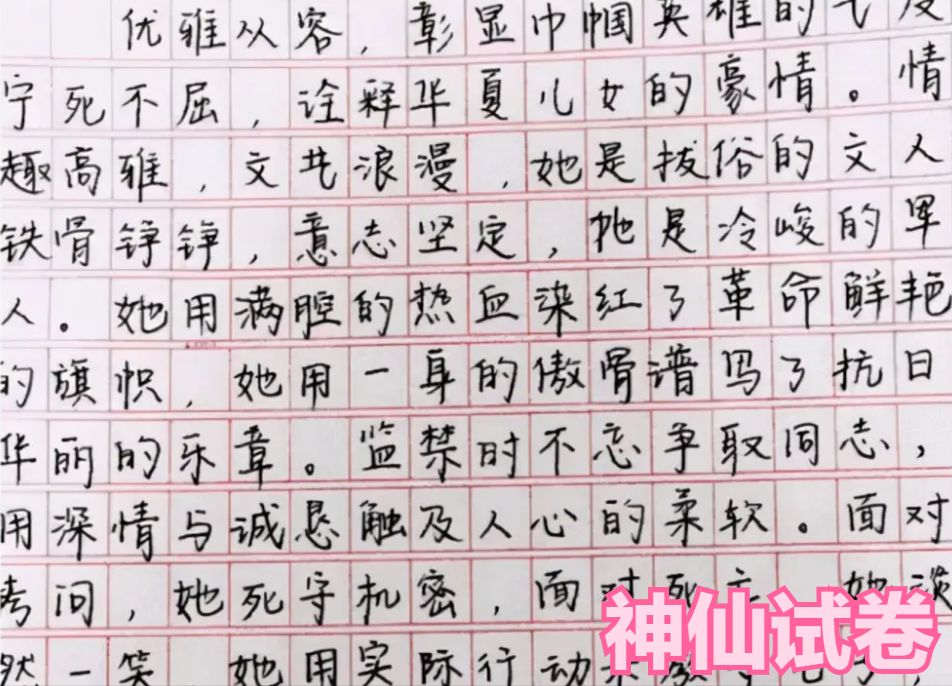 优雅从容，彰显巾帼英雄的气度
宁死不屈，诠释华夏儿女的豪情。情
趣高雅，文艺浪漫，她是拔俗的文人
铁骨铮铮，意志坚定，她是冷峻的军
人。她用满腔的热血染红了革命鲜艳
的旗帜，她用一身的傲骨谱写了抗日
华丽的乐章。监禁时不忘争取同志，
用深情与诚恳触及人心的柔软。面对
拷问，她死守机密，面对死亡，她淡
然一笑，她用实际行动
神仙试卷